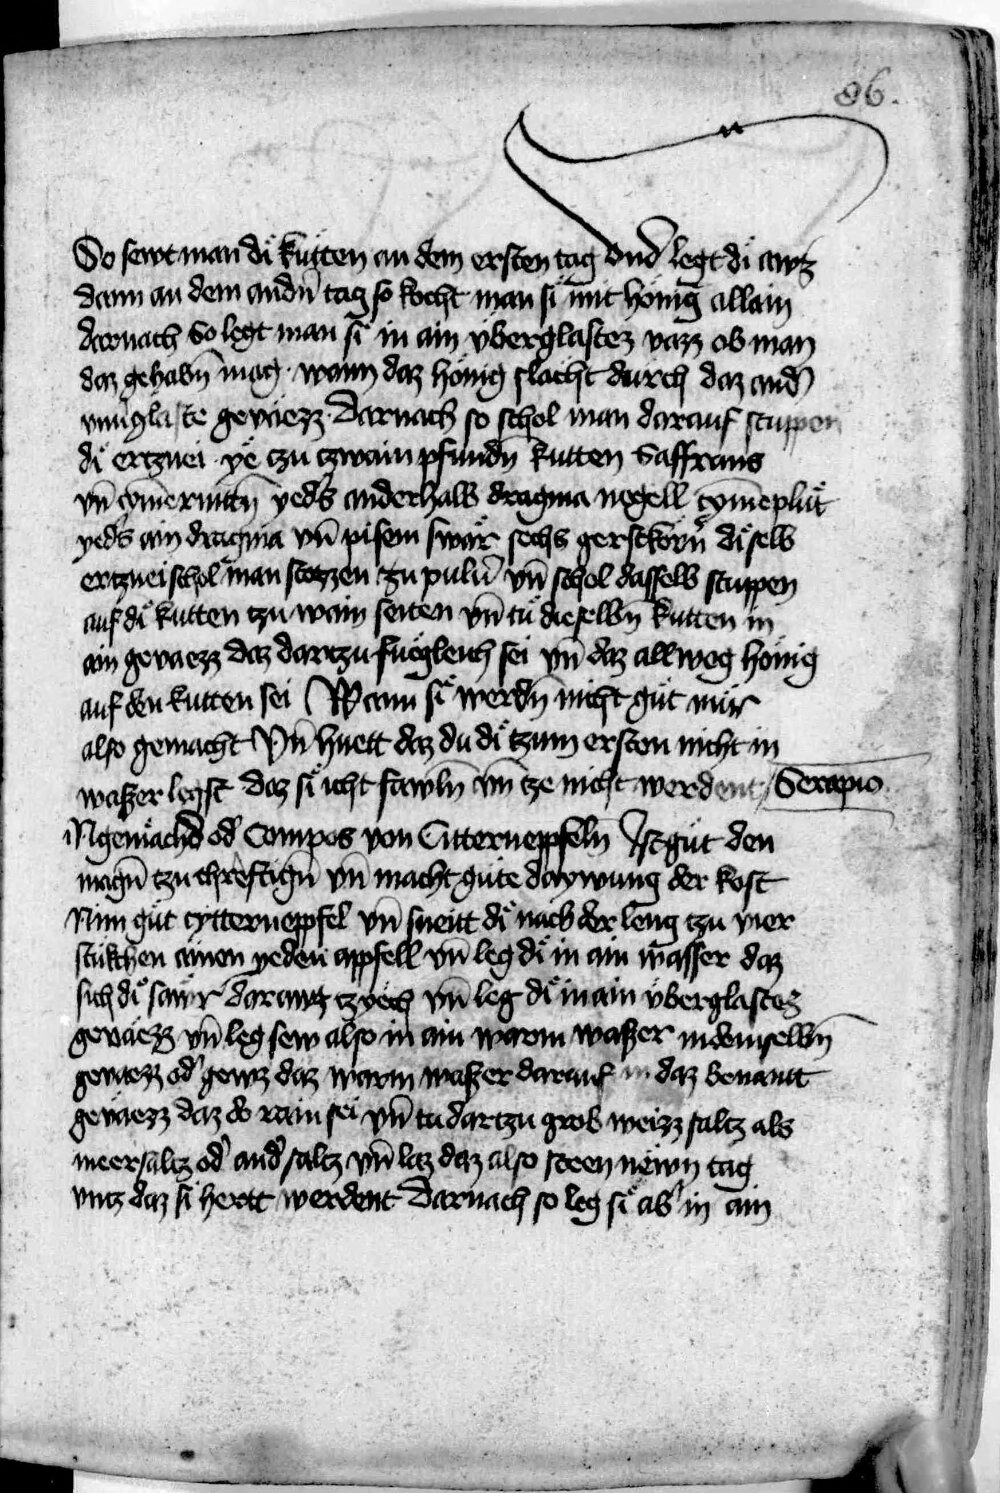 96.
So sewt man di̊ kutten an dem ersten tag vnd̕ legt di̊ awz
dann an dem andn̄ tag so kocht man si̊ mit hönig allain
darnach So legt man si̊ in ain v̈berglastez vazz ob man
daz gehabn̄ mag · wann daz hönig slacht durch daz and̕
vnuglaste geväezz · Darnach so schol man darauf stuppen
di̊ ertznei · yë tzu tzwain pfundn̄ kutten Saffrans
vn̄ cym̄erintn̄ yeds̕ anderhalb dragma negell cym̄eplüt
yeds̕ ain dragma vn̄ pisem swär sechs gerstkörn̄ di̊ selb
ertznei schol man stozzen zu puluͦ vn̄ schol dasselb stuppen
auf di̊ kutten tzu wain seiten vn̄ tü dieselbn̄ kutten in
ain gevaezz daz dartzu füegleich sei vn̄ daz allweg hönig
auf den kutten sei Wann si̊ werdn̄ nicht güt nür
also gemacht Vn̄ huett daz du di̊ tzum ersten nicht in
wazzer legst daz si̊ icht fawln̄ vn̄ tze nicht werdent / Serapio
INgemächd od̕ Compos von Citternepfeln̄ Ist güt den
magn̄ tzu chreftign̄ vn̄ macht güte daywung der kost
Nim güt cytternepfel vn̄ sneitt di̊ nach der leng tzu vier
stükchen ainen yeden appfell vn̄ leg di̊ in ain wasser daz
sich di̊ sawr darawz tzyech vn̄ leg di̊ in ain v̈berglastez
geväezz vn̄ leg sew also in ain warm wazzer in demselbn̄
gevaezz od̕ gewz daz warm wazzer darauf in daz benantt
geväezz daz do rain sei vn̄ tu dartzu grob weizz saltz als
meersaltz od̕ and̕ saltz vn̄ laz daz also steen newn tag
vntz daz si̊ hertt werdent Darnach so leg si̊ ab̕ in ain